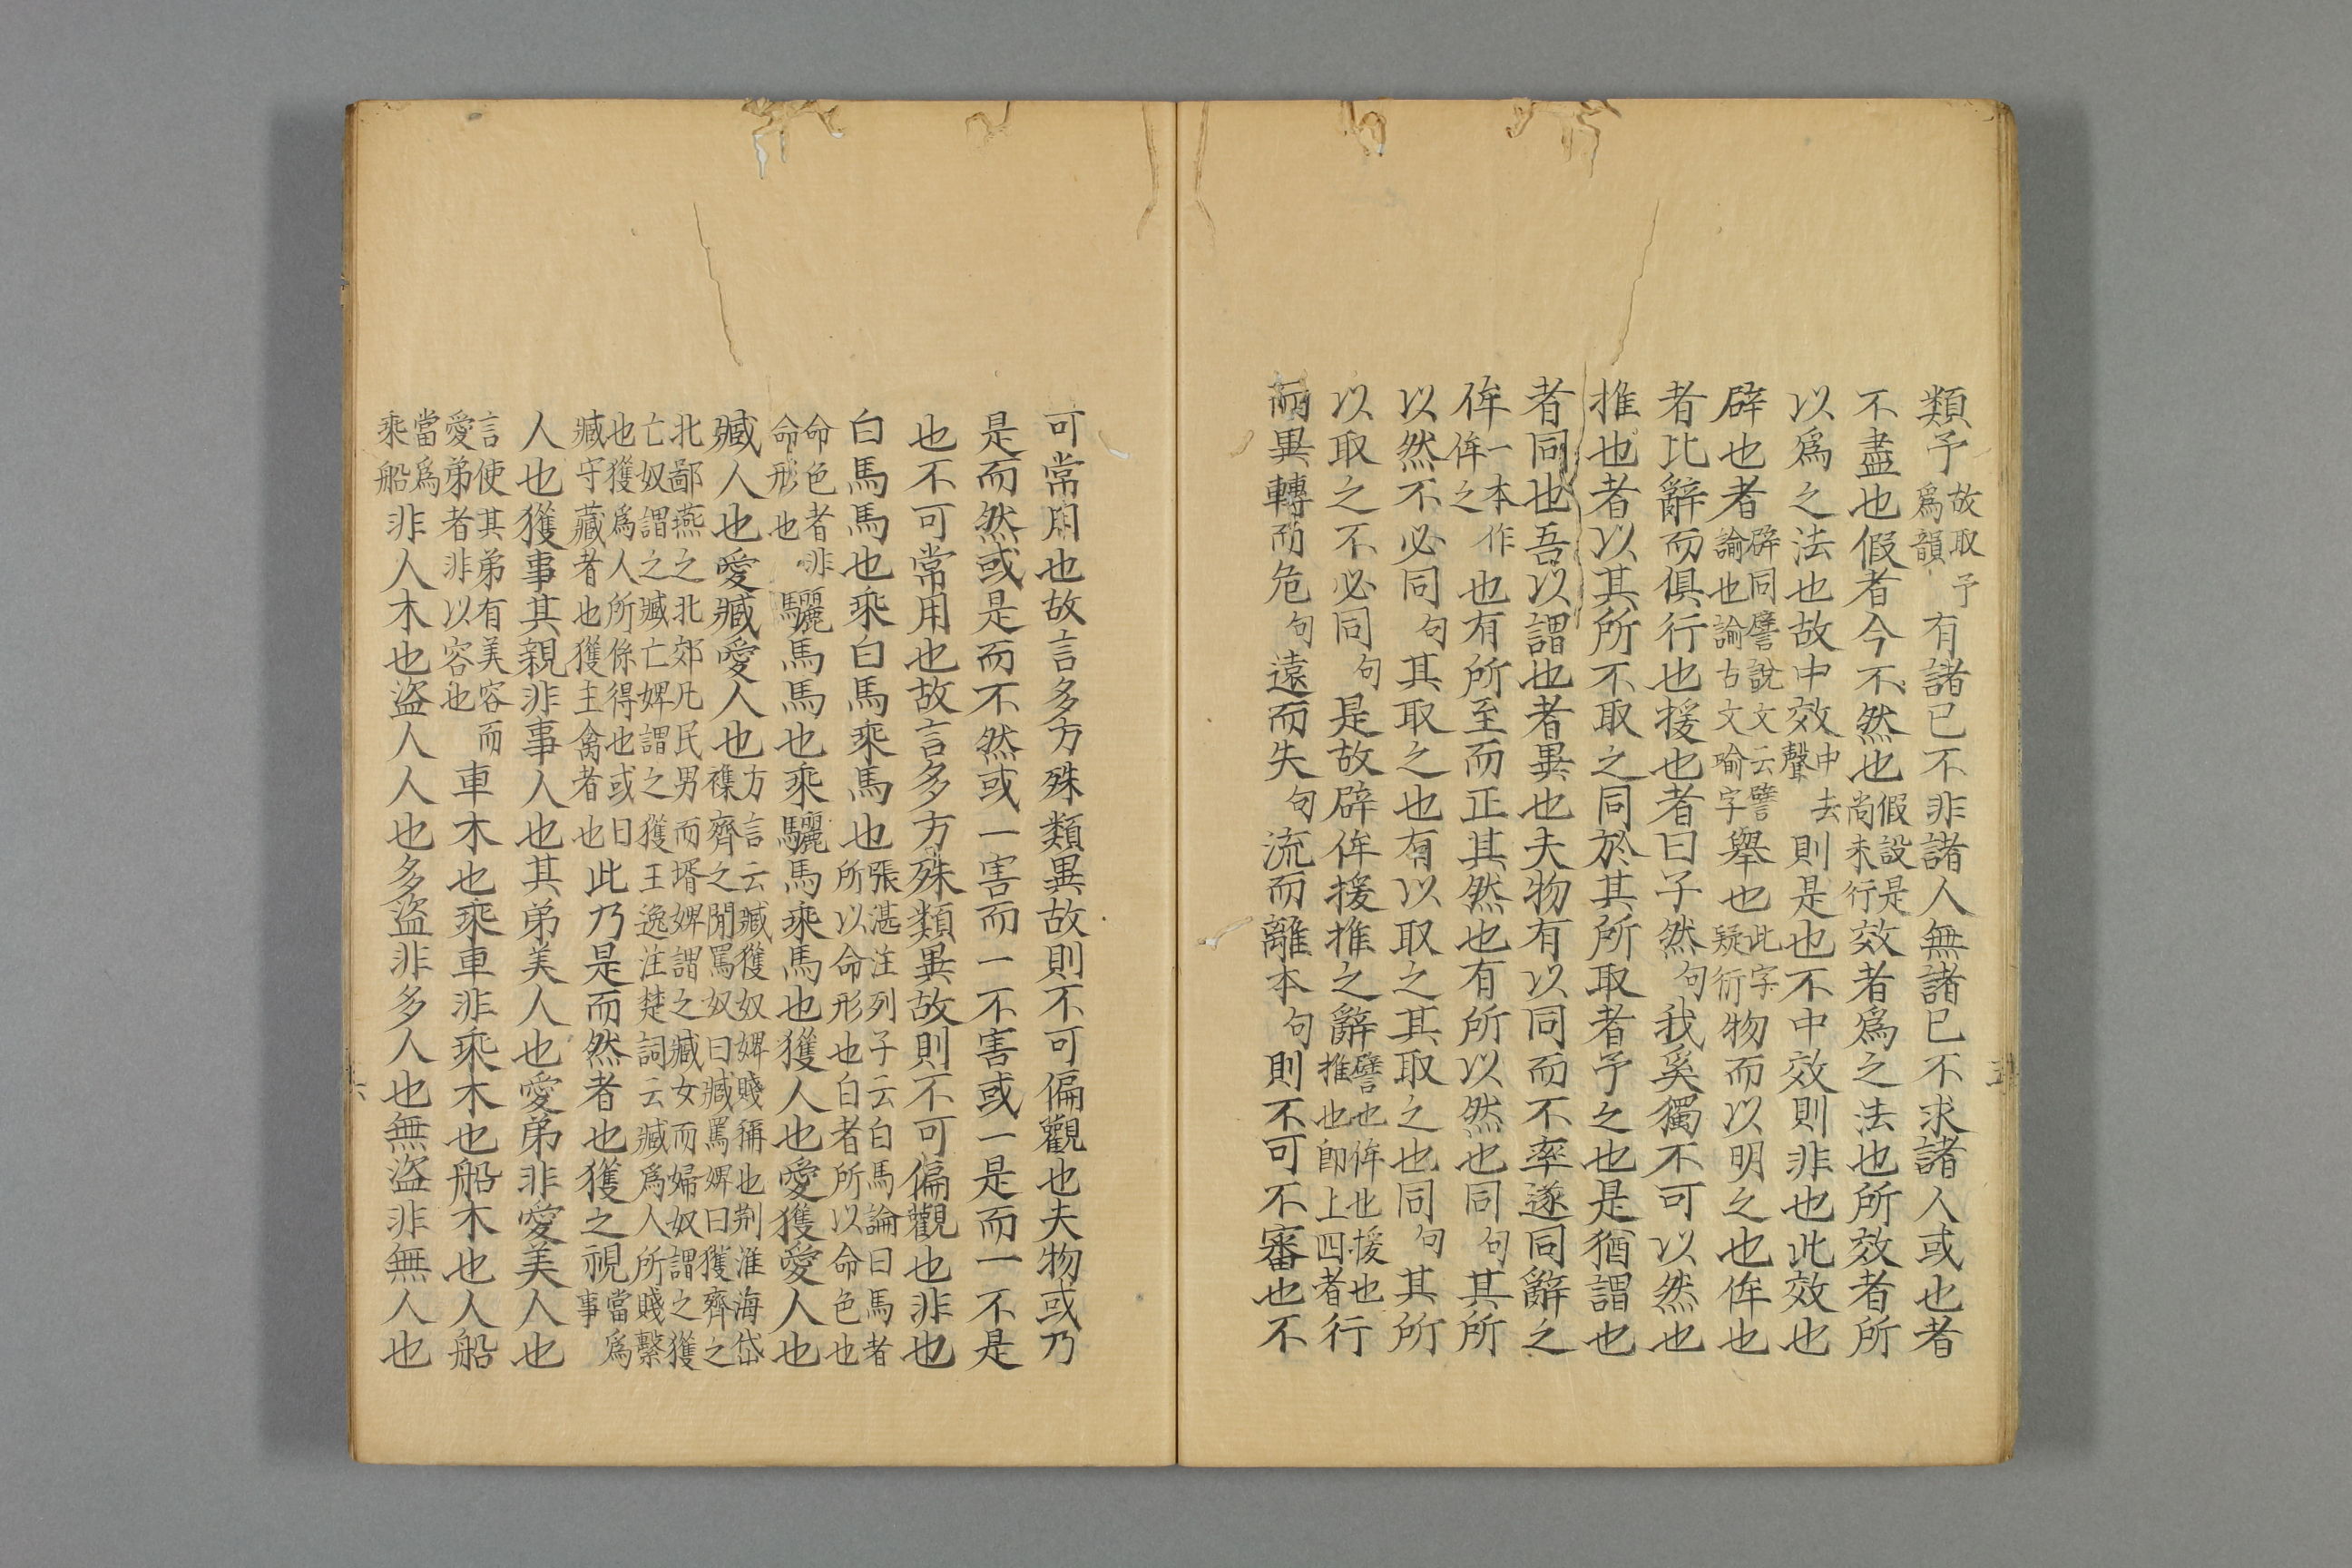 類予故取予爲韻有諸己不非諸人無諸己不求諸人或也者
不盡也假者今不然也假設是尚未行效者爲之法也所效者所
以爲之法也故中效中去聲則是也不中效則非也此效也
辟也者辟同譬說文云譬諭也諭古文喻字舉也此字疑衍物而以明之也侔也
者比辭而俱行也援也者曰子然句我奚獨不可以然也
推也者以其所不取之同於其所取者予之也是猶謂也
者同也吾以謂也者異也夫物有以同而不率遂同辭之
侔一本作侔之也有所至而正其然也有所以然也同句其所
以然不必同句其取之也有以取之其取之也同句其所
以取之不必同句是故辟侔援推之辭譬也侔也援也推也卽上四者行
而異轉而危句遠而失句流而離本句則不可不審也不
可常用也故言多方殊類異故則不可偏觀也夫物或乃
是而然或是而不然或一害而一不害或一是而一不是
也不可常用也故言多方殊類異故則不可偏觀也非也
白馬馬也乘白馬乘馬也張湛注列子云白馬論曰馬者所以命形也白者所以命色也
命色者非命形也驪馬馬也乘驪馬乘馬也獲人也愛獲愛人也
臧人也愛臧愛人也方言云臧獲奴婢賤稱也荆淮海岱襍齊之閒罵奴曰臧罵婢曰獲齊之
北鄙燕之北郊凡民男而壻婢謂之臧女而婦奴謂之獲亡奴謂之臧亡婢謂之獲王逸注楚詞云臧爲人所賤繫
也獲爲人所係得也或曰臧守藏者也獲主禽者也此乃是而然者也獲之視當爲事
人也獲事其親非事人也其弟美人也愛弟非愛美人也
言使其弟有美容而愛弟者非以容也車木也乘車非乘木也船木也人船
當爲乘船非人木也盜人人也多盜非多人也無盜非無人也
五
六